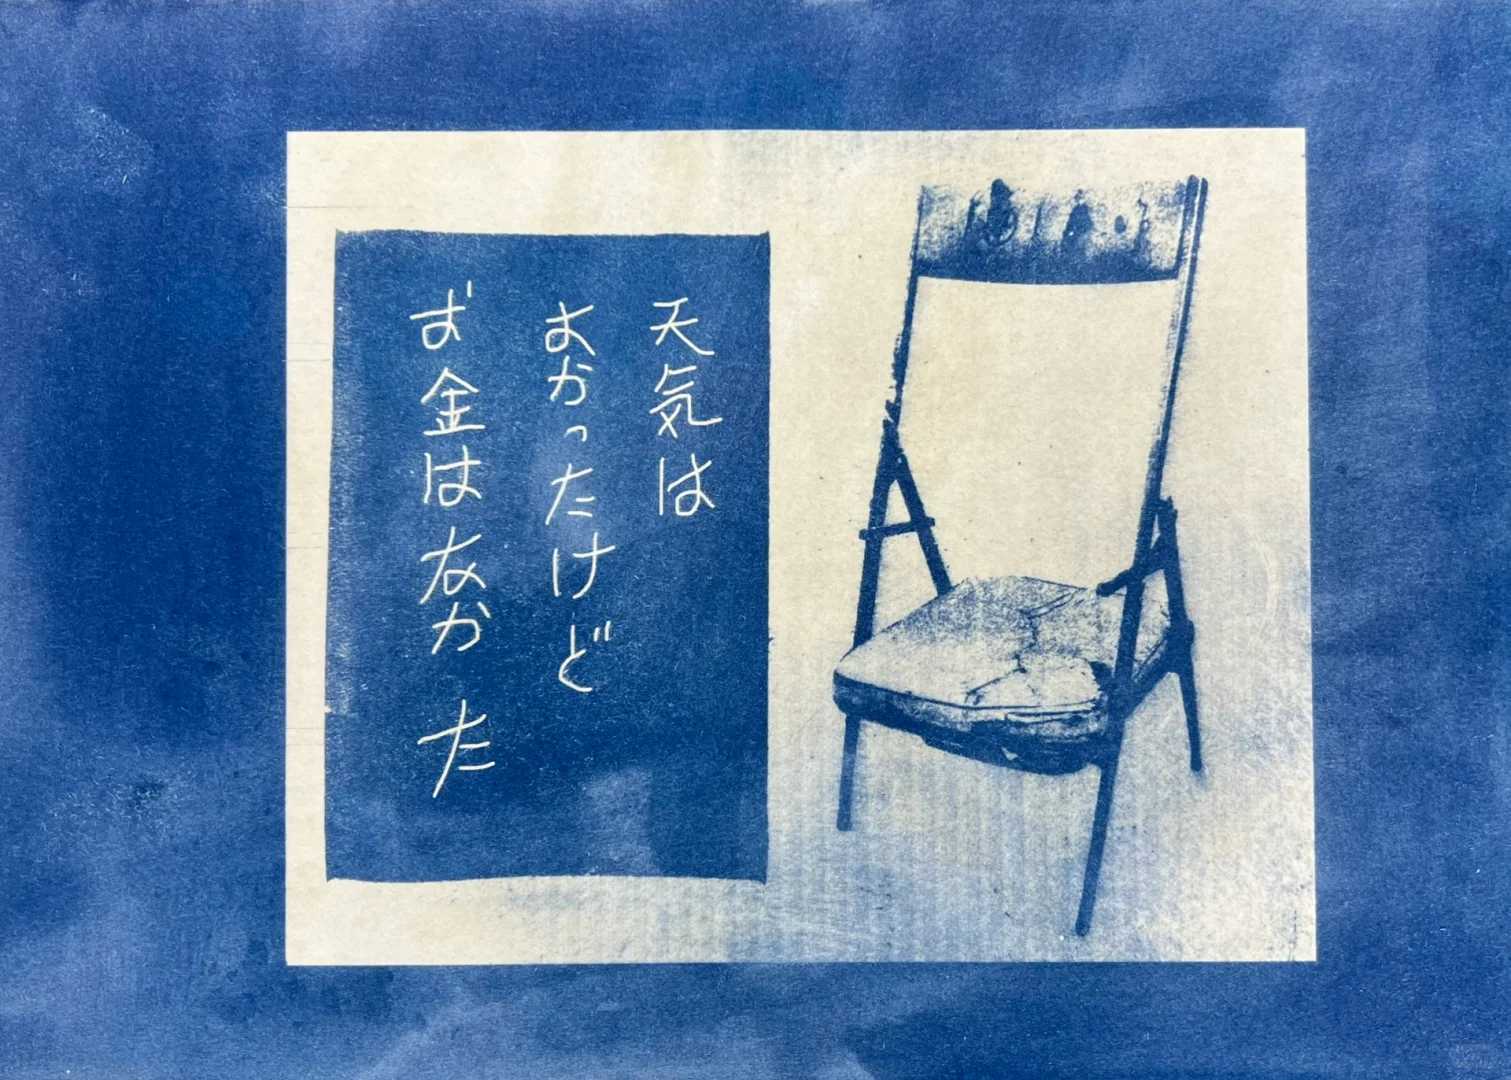 天気は
よかったけど
お金はなかった